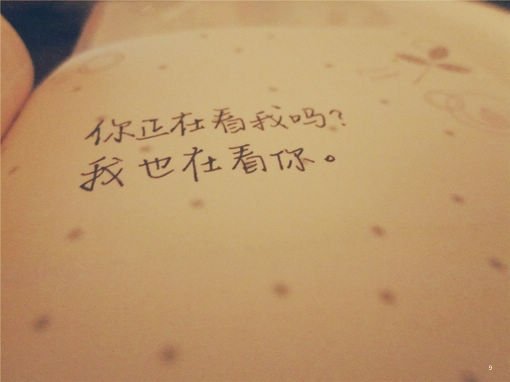 你正在看我吗?
我也在看你。
9